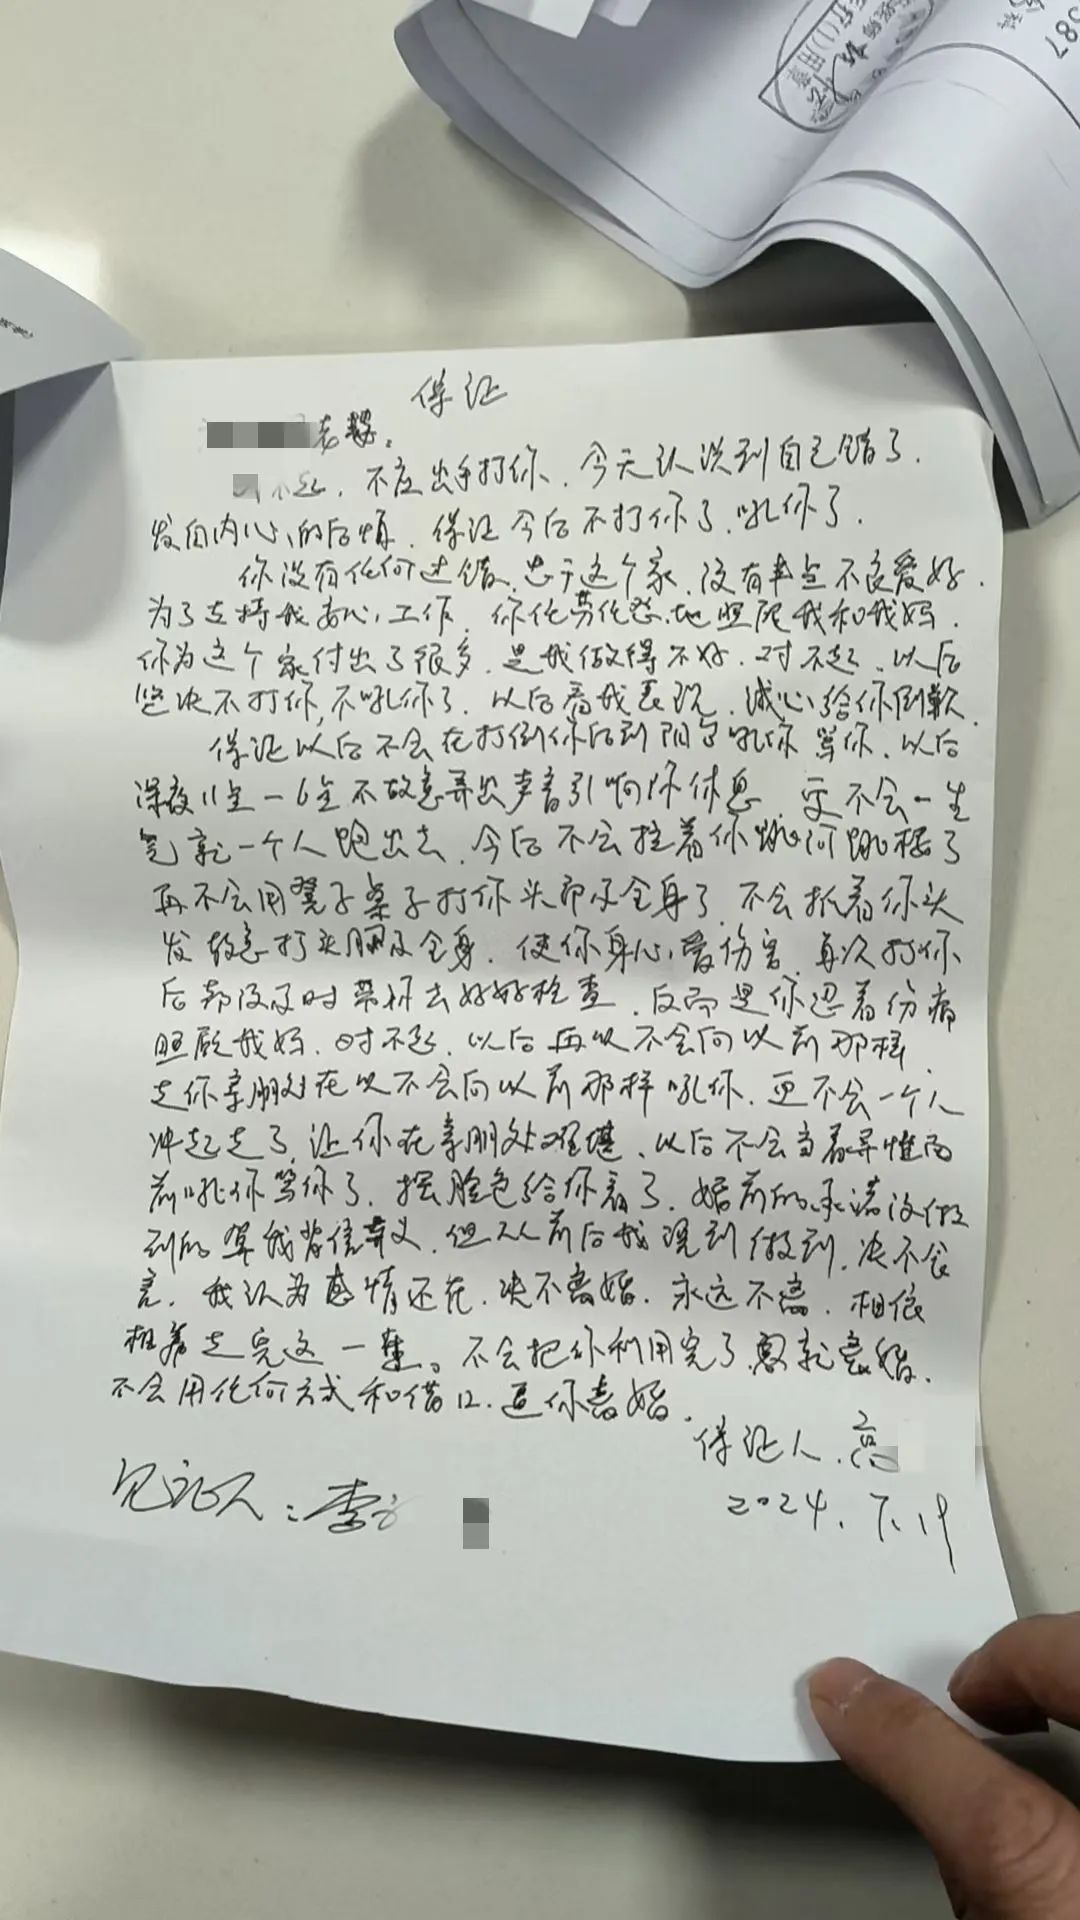 保证
老婆。
不起．不应出手打你．今天认识到自己错了．
发自内心的后悔．保证今后不打你了．吼你了．
你没有任何过错．忠于这个家．没有半点不良爱好．
为了支持我安心工作．你任劳任怨地照顾我和我妈．
你为这个家付出了很多．是我做得不好．对不起．以后
坚决不打你，不吼你了．以后看我表现．诚心给你倒歉．
保证以后不会在打倒你后到阳台吼你骂你．以后
深夜11点一6点不故意弄出声音引响你休息．更不会一生
气就一个人跑出去．今后不会拉着你跳河跳楼了
再不会用凳子桌子打你头部及全身了．不会抓着你头
发故意打头脑及全身．使你身心受伤害．每次打你
后都没及时带你去好好检查．反而是你忍着伤痛
照顾我妈．对不起．以后再以不会向以前那样
走你亲朋处在以不会向以前那样吼你．更不会一个人
冲起走了．让你在亲朋处难堪．以后不会当着异性面
前吼你骂你了．摆脸色给你看了．婚前的承诺没做
到的算我背信弃义．但从前后我说到做到．决不食
言．我认为感情还在．决不离婚．永远不离．相依
相养走完这一辈。不会把你利用完了就离婚．
不会用任何方式和借口．逼你离婚．
保证人．高
见证人：李
2024．7．19